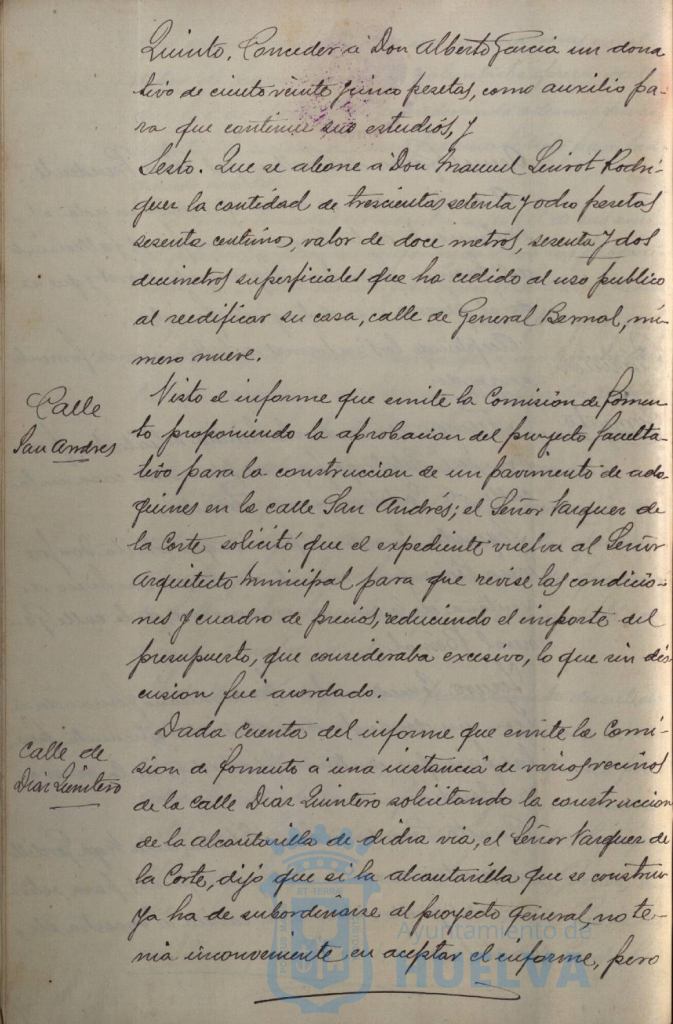 Quinto. Conceder a Don Alberto Garcia un dona
tivo de ciento veinte y cinco pesetas, como auxilio pa-
ra que continue sus estudios, y
Sesto. Que se abone a Don Manuel Quirot Rodri-
guez la cantidad de trescientas setenta y ocho pesetas
sesenta centimos, valor de doce metros, sesenta y dos
decimetros superficiales que ha cedido al uso publico
al reedificar su casa, calle de General Bernal, nú-
mero nueve.
Calle
San Andres
Visto el informe que emite la Comisión de Fomen-
to proponiendo la aprobacion del proyecto faculta-
tivo para la construccion de un pavimento de ado-
quines en la calle San Andrés; el Señor Vazquez de
la Corte solicitó que el expediente vuelva al Señor
Arquitecto Municipal para que revise las condicio-
nes y cuadro de precios, reduciendo el importe del
presupuesto, que consideraba excesivo, lo que sin dis-
cusion fué acordado.
Calle de
Diaz Quintero
Dada cuenta del informe que emite la Comi-
sion de Fomento a una instancia de varios vecinos
de la calle Diaz Quintero solicitando la construccion
de la alcantarilla de dicha via, el Señor Vazquez de
la Corte, dijo que si la alcantarilla que se constru-
ya ha de subordinarse al proyecto General no te-
nia inconveniente en aceptar el informe, pero
Ayuntamiento de
HUELVA